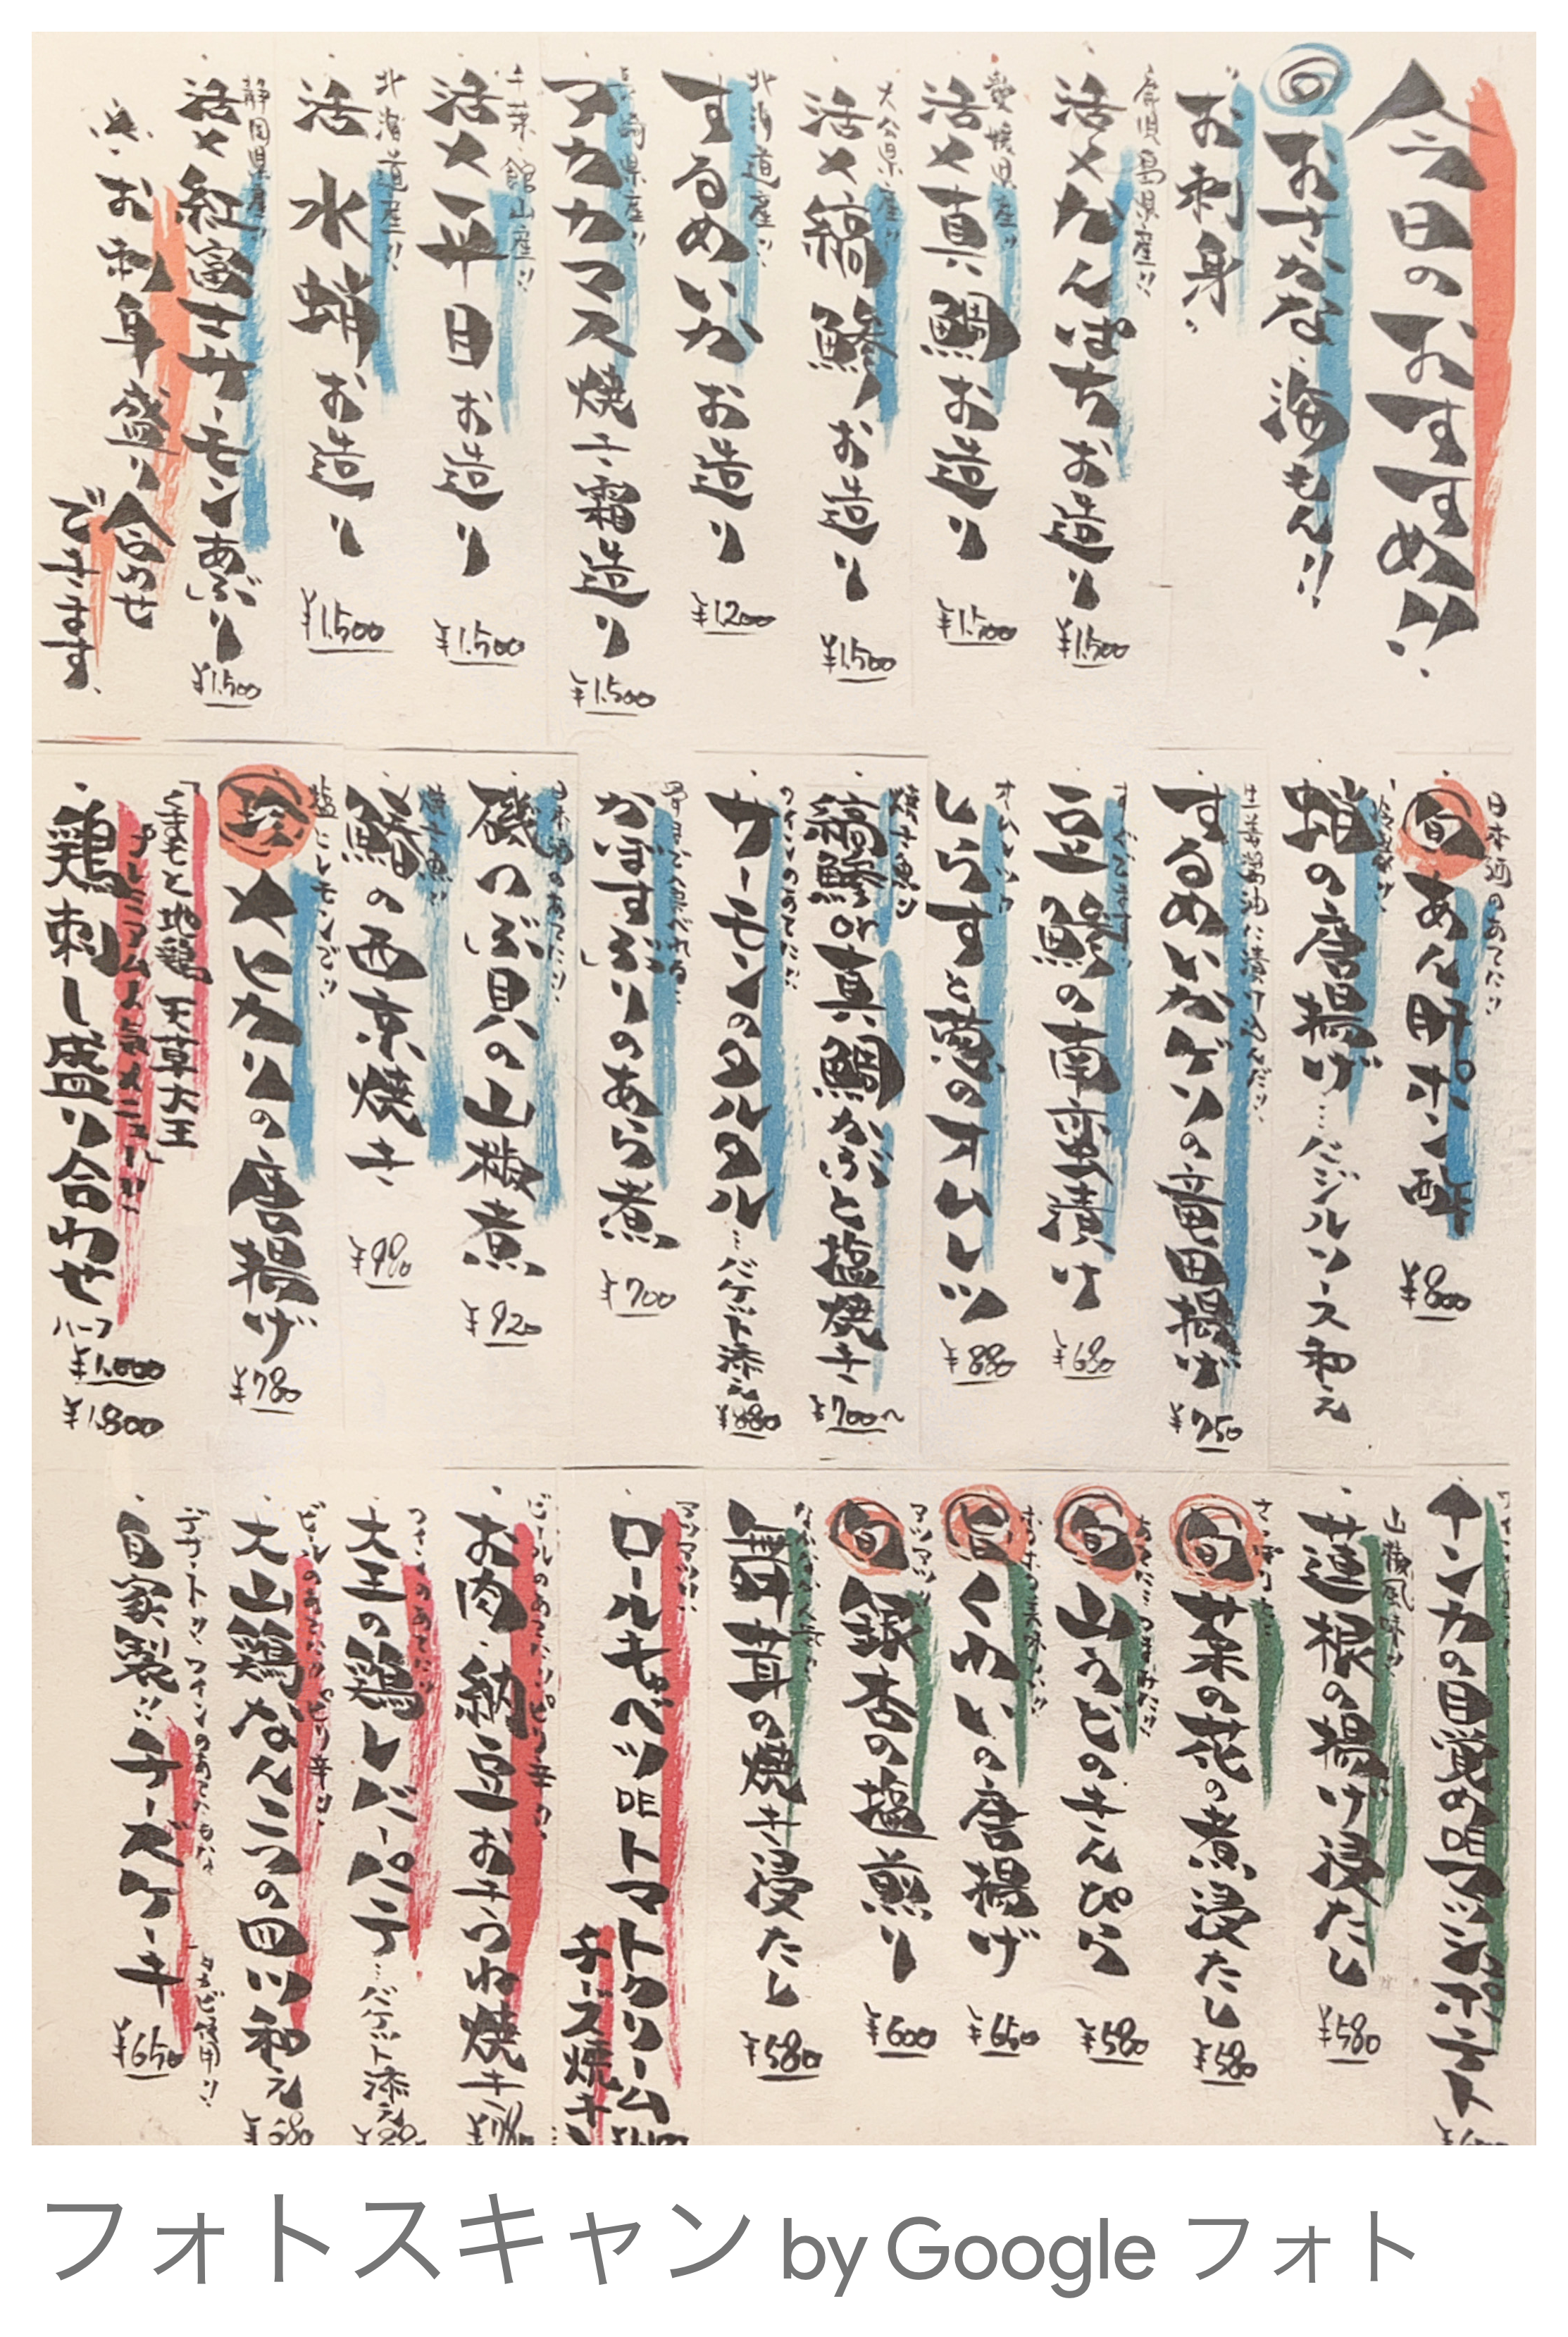 今日のおすすめ!!
旬 おさかな・海もん!!
お刺身
鹿児島県産!!
活〆かんぱちお造り
¥1,500
愛媛県産!!
活〆真鯛お造り
¥1,500
大分県産!!
活〆縞鯵お造り
¥1,500
北海道産!!
するめいかお造り
¥1,200
長崎県産!!
アカカマス焼き霜造り
¥1,500
千葉・館山産!!
活〆平目お造り
¥1,500
北海道産!!
活 水蛸お造り
¥1,500
静岡県産!!
活〆紅富士サーモンあぶり
¥1,500
お刺身盛り合わせ
できます
日本酒のあてに!!
旬 あん肝ポン酢
¥800
蛸の唐揚げ…バジルソース和え
生姜醤油に漬け込んだ!!
するめいかゲソの竜田揚げ
¥750
豆鯵の南蛮漬け
¥680
しらすと葱のオムレツ
¥880
焼き魚!!
縞鯵or真鯛かぶと塩焼き
¥700~
ワインのあてに!!
サーモンのタルタル…バケット添え
¥880
かます・ぶりのあら煮
¥700
日本酒のあてに!!
磯つぶ貝の山椒煮
¥920
焼き魚!!
鰆の西京焼き
¥980
塩にレモンで!!
珍 メヒカリの唐揚げ
¥780
くまもと地鶏 天草大王
プレミアム人気メニュー!!
鶏刺し盛り合わせ
ハーフ
¥1,000
¥1,800
インカの目覚め明マッシュポテト
山椒風味!!
蓮根の揚げ浸たし
¥580
旬 菜の花の煮浸たし
¥580
旬 山うどのきんぴら
¥580
旨 くわいの唐揚げ
¥650
旬 銀杏の塩煎り
¥600
舞茸の焼き浸たし
¥580
アツアツ!!
ロールキャベツDEトマトクリーム
チーズ焼き
ビールのあてに!!ピリ辛!!
お肉・納豆おきつね焼き
ワインのあてに!!
大王の鶏レバーパテ…バケット添え
ビールのあてに!!ピリ辛!!
大山鶏なんこつの四川和え
¥680
デザート!!ワインのあてにもな
自家製!!チーズケーキ
¥650
フォトスキャン by Google フォト